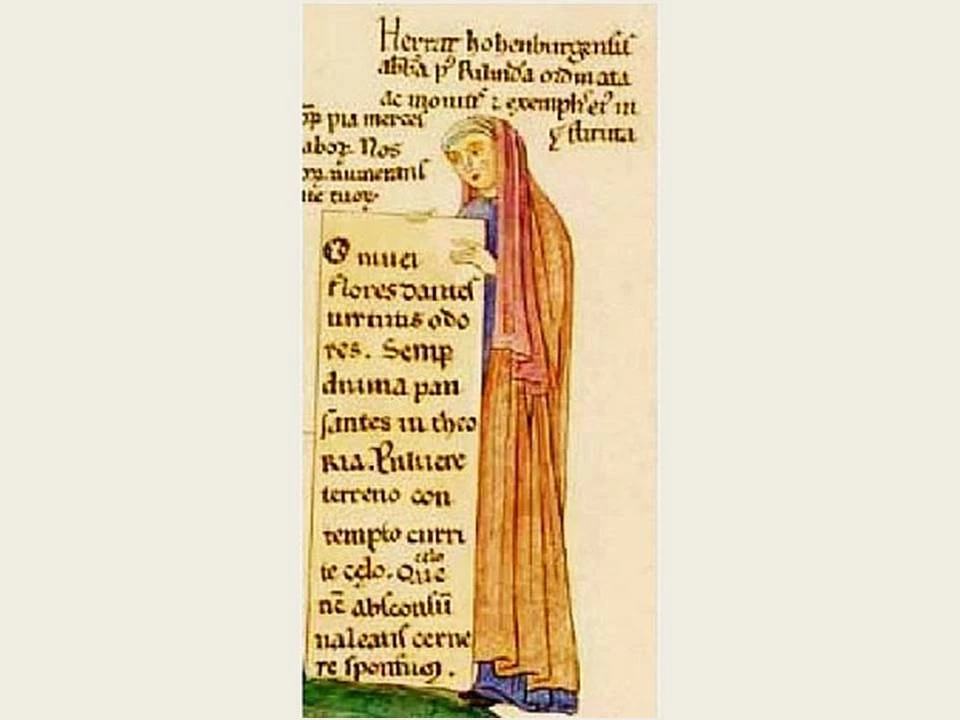 Herrat hohenburgensis
abba p' Rilinda ordinata
ac monit' ⁊ exempl' ei' in
stituta
pia merces
labor. Nos
numerans
tuor
O niuei
flores dantes
uirtutis odo
res. Semp
diuina pau
santes in theo
RIA. Puluere
terreno con
tempto curri
te celo. Que
celo
nc absconsu
ualeatis cerne
re sponsum.